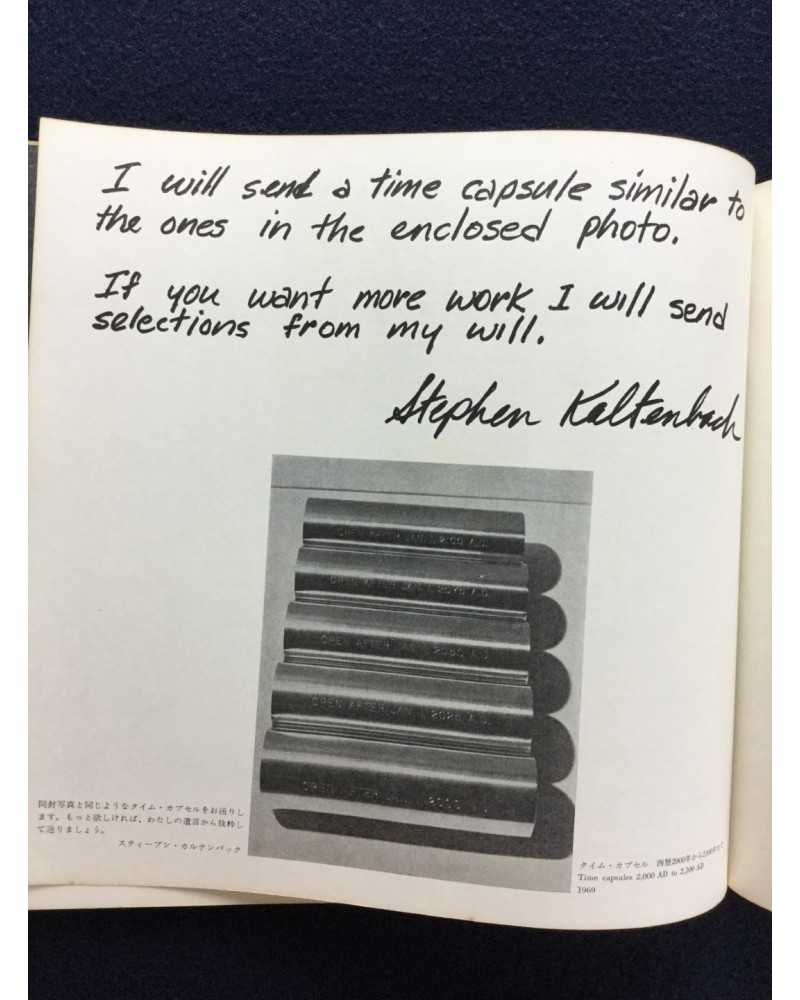 I will send a time capsule similar to
the ones in the enclosed photo.
If you want more work I will send
selections from my will.
Stephen Kaltenbach
OPEN AFTER JAN. 1, 2100 A.D.
OPEN AFTER JAN. 1, 2075 A.D.
OPEN AFTER JAN. 1, 2050 A.D.
OPEN AFTER JAN. 1, 2025 A.D.
OPEN AFTER JAN. 1, 2000 A.D.
同封写真と同じようなタイム・カプセルをお送りし
ます。もっと欲しければ、わたしの遺言から抜粋し
て送りましょう。
スティーブン・カルテンバック
タイム・カプセル 西暦2000年から2,100年まで
Time capsules 2,000 AD to 2,100 AD
1969